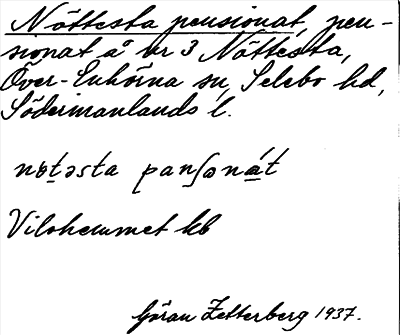 Nöttesta pensionat, pen-
sionat å nr 3 Nöttesta,
Över-Enhörna sn, Selebo hd,
Södermanlands l.
nɵt̠əsta panʃɷná̠t
Vilohemmet kb
Göran Zetterberg 1937.